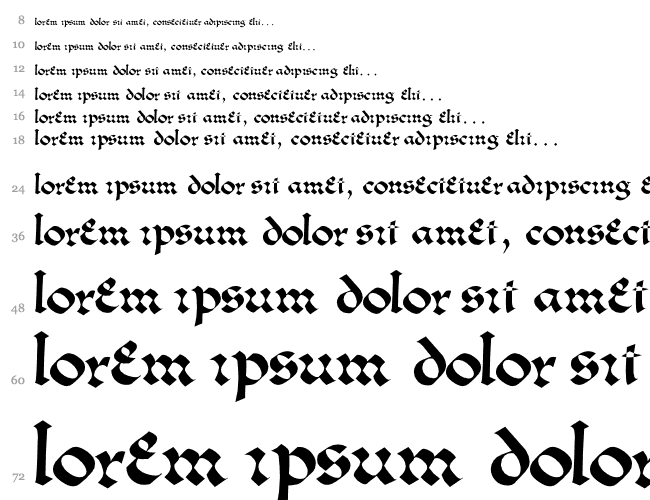 8 lorem ipsum dolor sit amet, consectetuer adipiscing eli...
10 lorem ipsum dolor sit amet, consectetuer adipiscing eli...
12 lorem ipsum dolor sit amet, consectetuer adipiscing eli...
14 lorem ipsum dolor sit amet, consectetuer adipiscing eli...
16 lorem ipsum dolor sit amet, consectetuer adipiscing eli...
18 lorem ipsum dolor sit amet, consectetuer adipiscing eli...
24 lorem ipsum dolor sit amet, consectetuer adipiscing e
36 lorem ipsum dolor sit amet, consect
48 lorem ipsum dolor sit amet
60 lorem ipsum dolor sit
72 lorem ipsum dolor